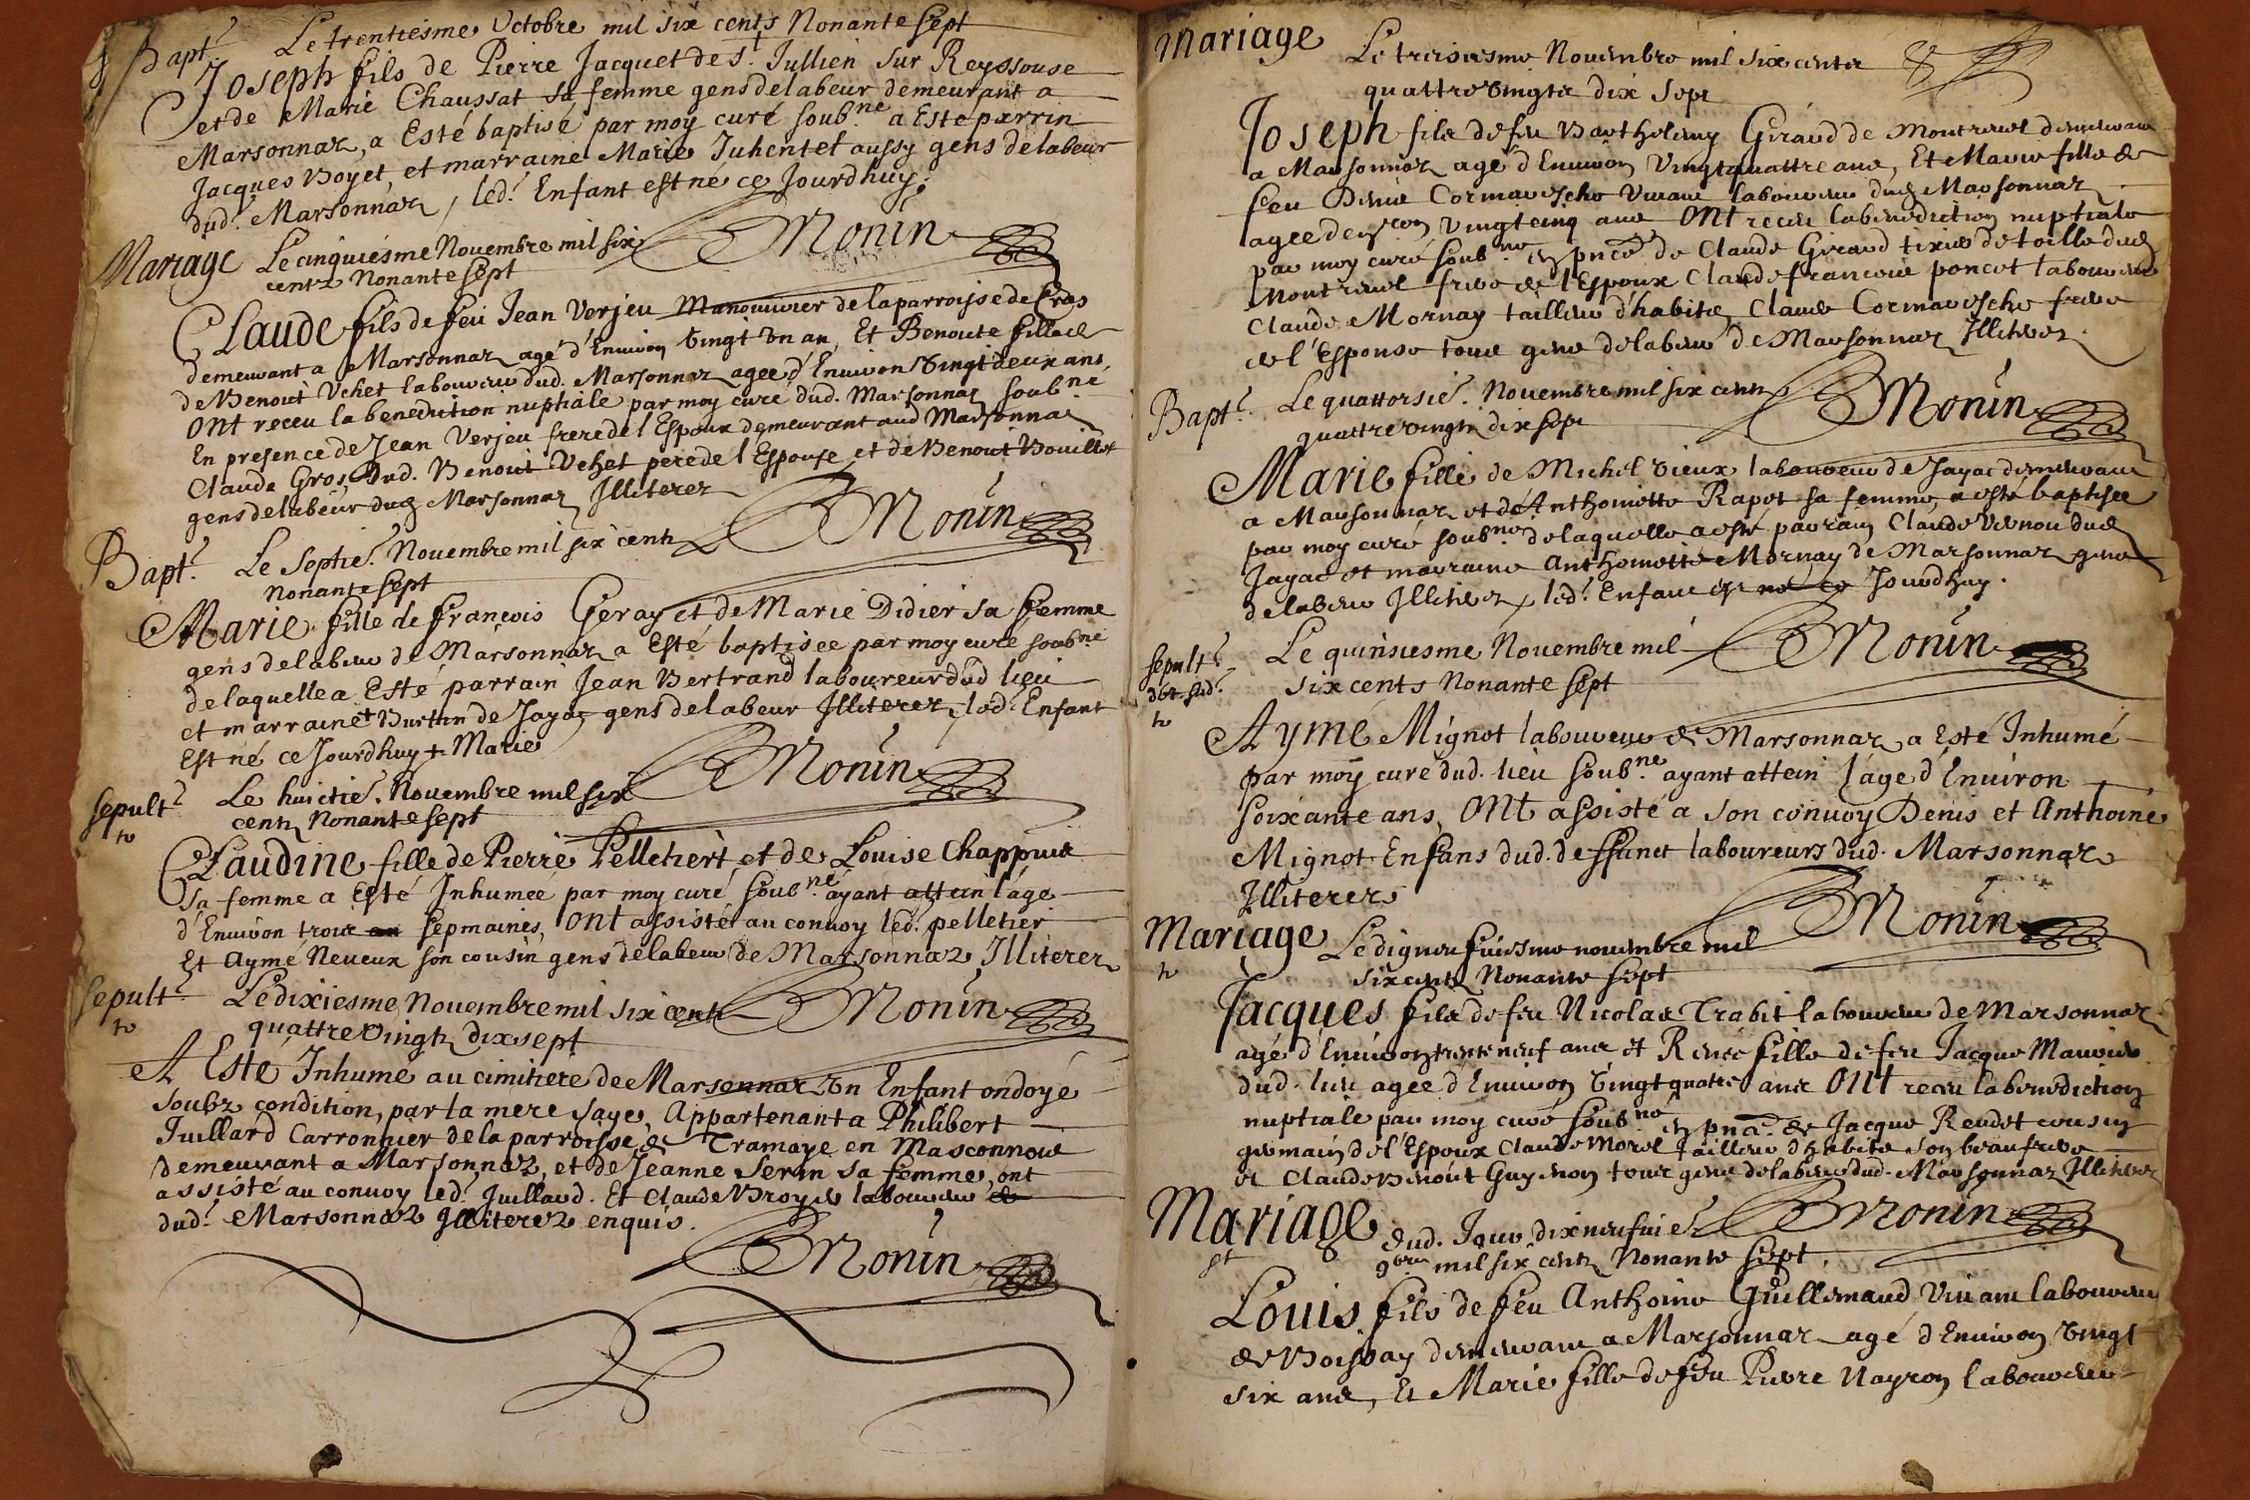 Bapt.e Le trentiesme Octobre mil six cents Nonante sept
Joseph fils de Pierre Jacquet de st. Jullien sur Reyssouse
et de Marie Chaussat sa femme gens de labeur demeurant a
Marsonnaz, a Esté baptisé par moy curé soub.ne a Esté parrin
Jacques Boyet, et marraine Marie Juhentet aussy gens de labeur
dud.t Marsonnaz, led.t Enfant est né ce Jourdhuy.
Monin
Mariage Le cinquiesme Novembre mil six
centz Nonante sept
Claude fils de feu Jean Verjeu Manouvrier de la parroisse de Cras
demeurant a Marsonnaz agé d'Environ vingt un an, Et Benoite fille de
de Benoit Vehet laboureur dud. Marsonnaz agee d'Environ vingt deux ans,
ont receu la benediction nuptiale par moy curé dud. Marsonnaz soub.né
En presence de Jean Verjeu frere de l'Espoux demeurant aud Marsonnaz
Claude Gros dud. Benoit Vehet pere de l'Espouse et de Benoit Bouillet
gens de labeur dud Marsonnaz Illiterez
Monin
Bapt.e Le Septie.e Novembre mil six centz
nonante sept
Marie fille de françois Geray et de Marie Didier sa femme
gens de labeur de Marsonnaz a Esté baptisee par moy curé soub.né
de laquelle a Esté parrain Jean Bertrand laboureur dud lieu
et marraine + Burtin de Jayaz gens de labeur Illiterez, led.t Enfant
Est né ce Jourdhuy + Marie
Monin
sepult.e Le huictie.e Novembre mil six
to centz Nonante sept
Claudine fille de Pierre Pelletier et de Louise Chappuis
sa femme a Esté Inhumeé par moy curé soub.né ayant attein l'age
d'Environ trois an sepmaines, ont assisté au convoy led.t pelletier
Et Aymé Neveux son cousin gens de labeur de Marsonnaz Illiterez
Monin
sepult.e Le dixiesme Novembre mil six centz
to quattre vingtz dix sept
A Esté Inhumé au cimitiere de Marsonnaz un Enfant ondoyé
soubz condition, par la mere saye, Appartenant a Philibert
Juillard Carronnier de la parroisse de Tramaye en Masconnois
demeurant a Marsonnaz, et de Jeanne Serin sa femme, ont
assisté au convoy led.t Juillard. Et Claude Broyer laboureur de
dud.t Marsonnaz Illiterez enquis.
Monin
Mariage Le treisiesme Novembre mil six centz
quattre vingtz dix sept
Joseph fils de feu Barthelemy Giraud de Montrevel demeurant
a Marsonnaz agé d'Environ vingt quattre ans, Et Marie fille de
feu Denis Cormaresche vivant laboureur dud Marsonnaz
agee d'environ vingt cinq ans ont receu la benediction nuptiale
par moy curé soub.né en pnce de Claude Giraud tixier de toille dud
Montrevel frere de l'Espoux Claude francois poncet laboureur
Claude Mornay tailleur d'habitz Claude Cormaresche frere
de l'Espouse tous gens de labeur de Marsonnaz Illiterez.
Monin
Bapt.e Le quattorsie.e Novembre mil six centz
quattre vingtz dix sept
Marie fille de Michel vieux laboureur de Jayac demeurant
a Marsonnaz et de Anthoinette Rapet sa femme, a esté baptisee
par moy curé soub.né de laquelle a esté parrain Claude Vernou dud
Jayac et marraine Anthoinette Mornay de Marsonnaz gens
de labeur Illiterez, led.t Enfant est né ce Jourdhuy.
Monin
sepult.e Le quinsiesme Novembre mil
to six cents Nonante sept
Aymé Mignot laboureur de Marsonnaz a Esté Inhumé
par moy curé dud. lieu soub.né ayant attein l'age d'Environ
soixante ans, ont assisté a son convoy Denis et Anthoine
Mignot Enfans dud. deffunct laboureurs dud. Marsonnaz
Illiterez
Monin
Mariage Le dixneufviesme novembre mil
six centz Nonante sept
Jacques fils de feu Nicolas Trabit laboureur de Marsonnaz
agé d'Environ trente neuf ans et Renee fille de feu Jacque Mauvis
dud. lieu agee d'Environ vingt quatre ans ont receu la benediction
nuptiale par moy curé soub.né en pnce de Jacque Rendet cousin
germain de l'Espoux Claude Morel Tailleur d'habitz son beau frere
et Claude Benoit Guymon tous gens de labeur dud. Marsonnaz Illiterez
Monin
Mariage Dud. Jour dix neufvie.e
9bre mil six centz Nonante sept.
Louis fils de feu Anthoine Guillemaud vivant laboureur
de Boissay demeurant a Marsonnaz agé d'Environ vingt
six ans, Et Marie fille de feu Pierre Nayron laboureur